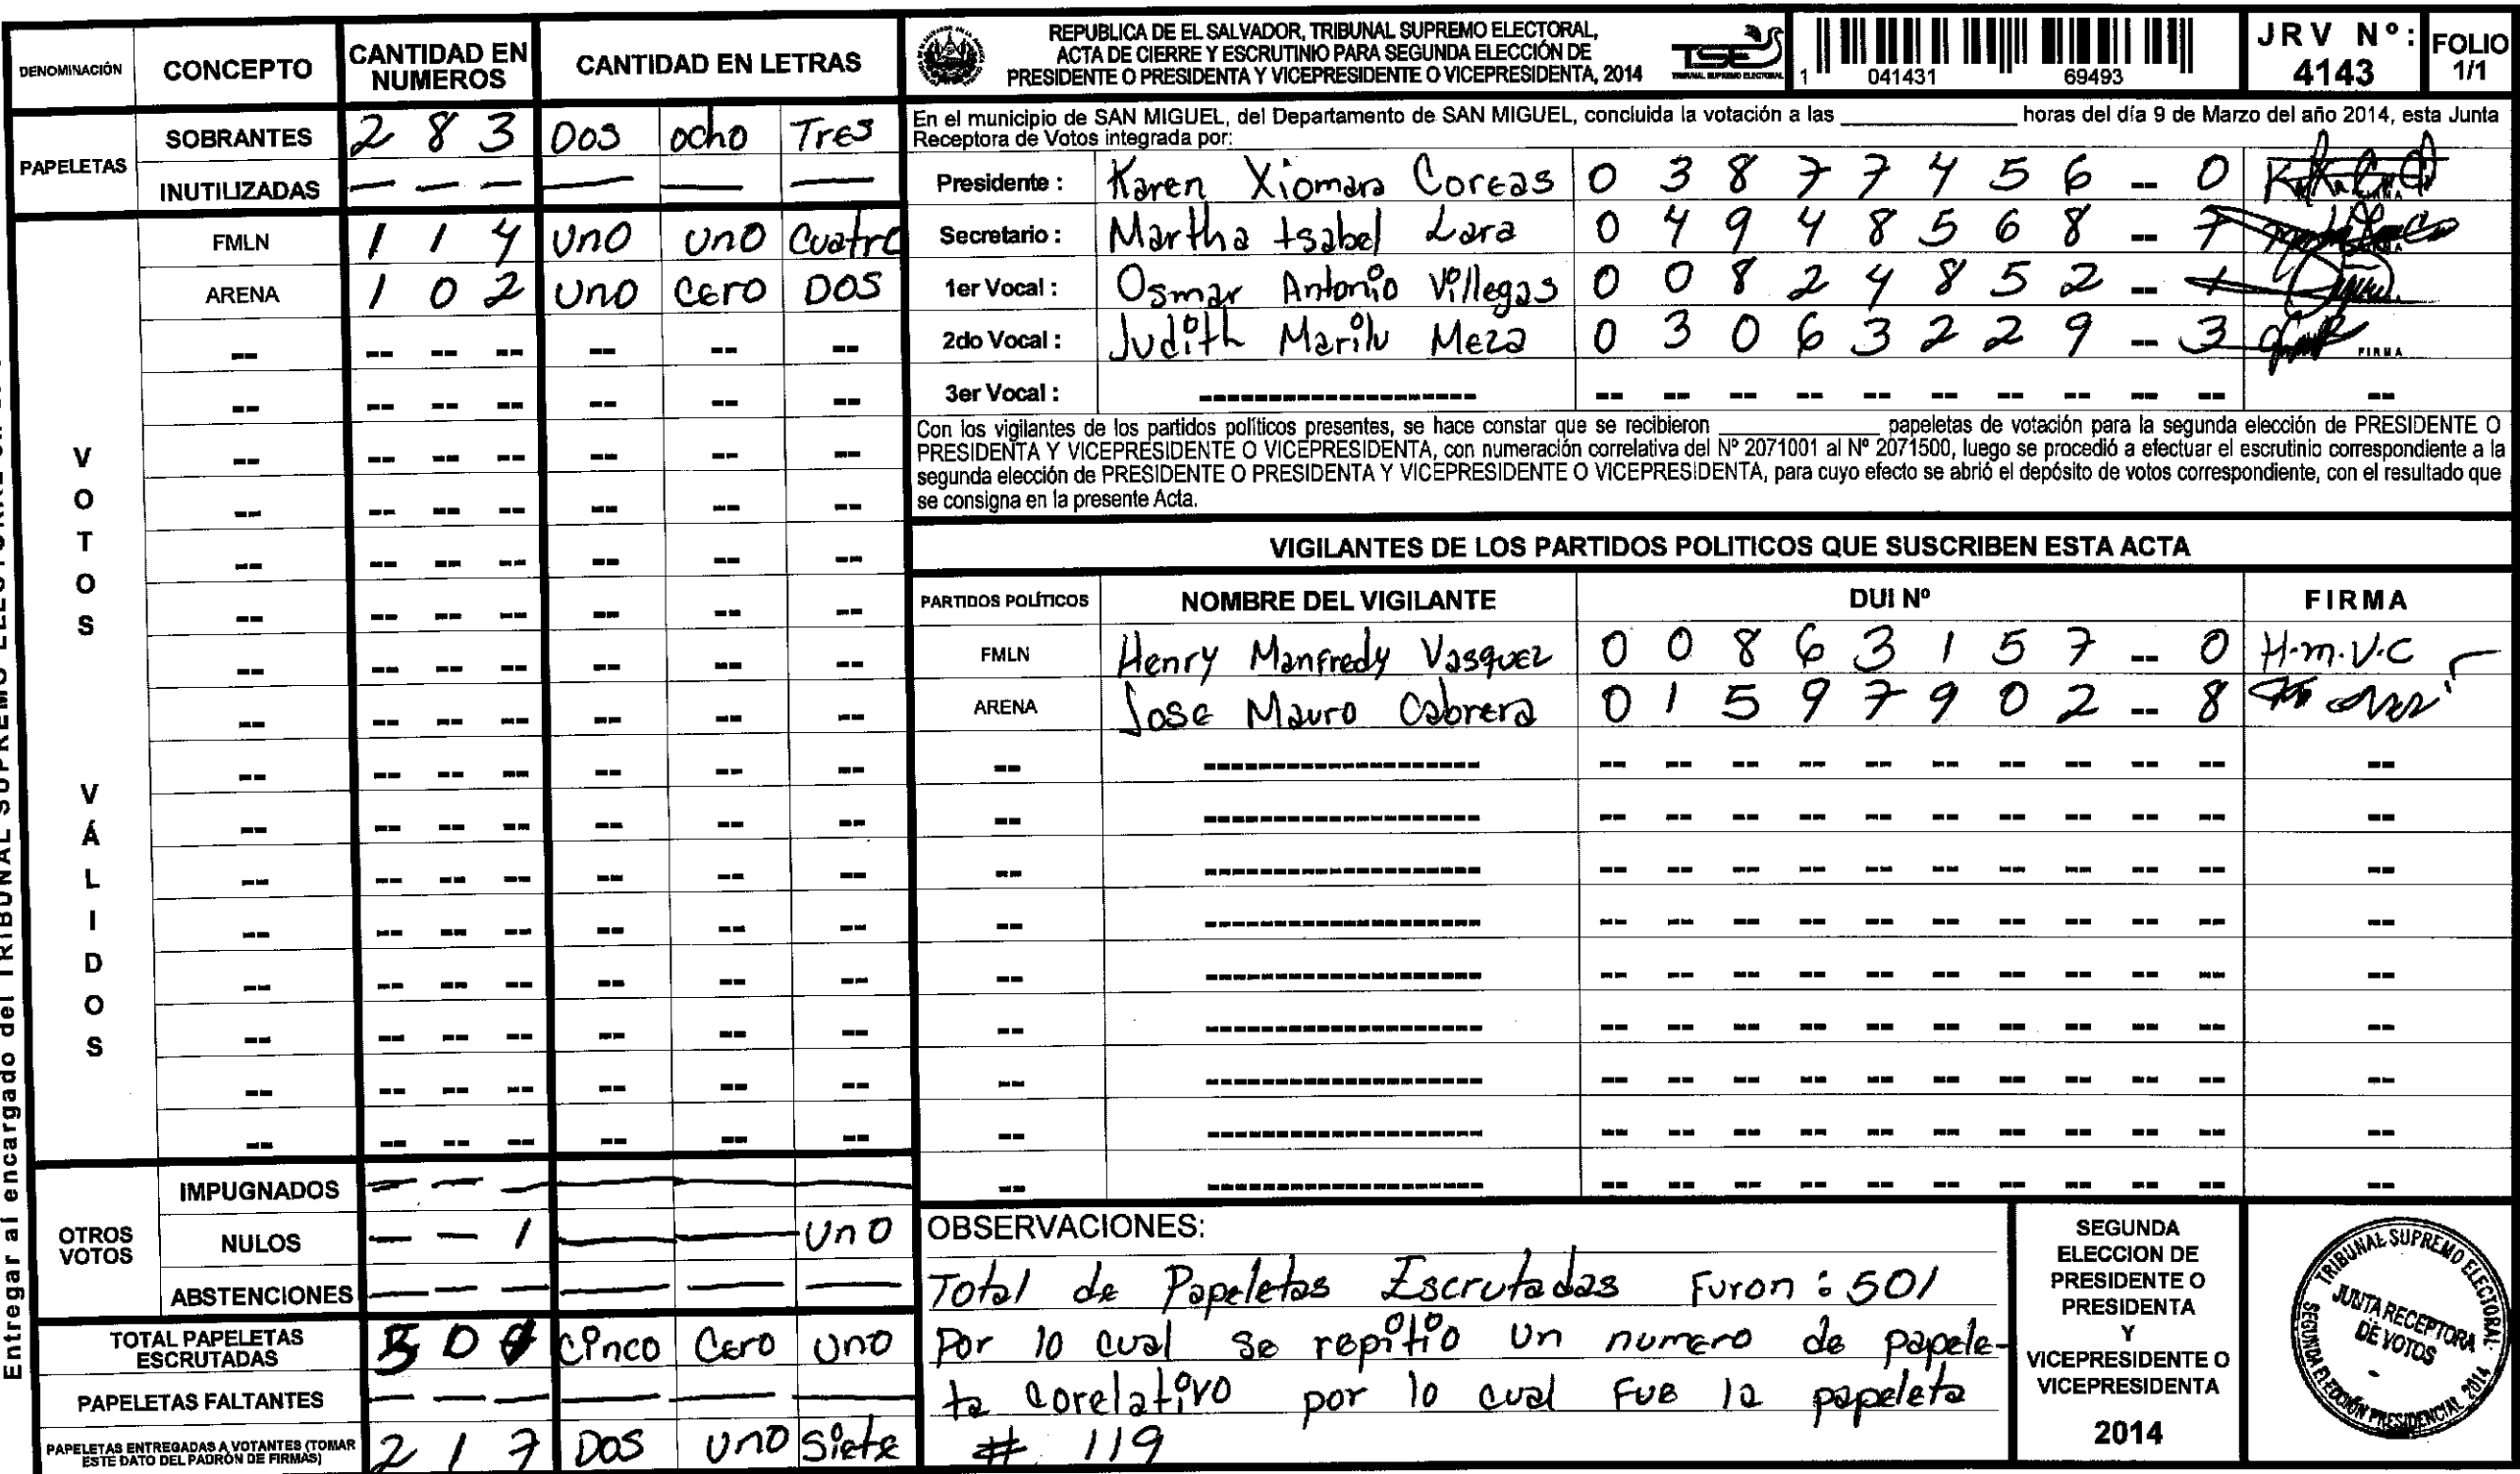 DENOMINACIÓN CONCEPTO CANTIDAD EN NUMEROS CANTIDAD EN LETRAS
PAPELETAS
SOBRANTES 2 8 3 Dos ocho Tres
INUTILIZADAS — — — — — —
VOTOS VÁLIDOS
FMLN 1 1 4 Uno Uno Cuatro
ARENA 1 0 2 Uno Cero DOS
OTROS VOTOS
IMPUGNADOS — — —
NULOS — — 1 — — Uno
ABSTENCIONES — — — — — —
TOTAL PAPELETAS ESCRUTADAS 5 0 1 Cinco Cero Uno
PAPELETAS FALTANTES — — — — — —
PAPELETAS ENTREGADAS A VOTANTES (TOMAR ESTE DATO DEL PADRÓN DE FIRMAS) 2 1 7 Dos Uno Siete
REPUBLICA DE EL SALVADOR, TRIBUNAL SUPREMO ELECTORAL,
ACTA DE CIERRE Y ESCRUTINIO PARA SEGUNDA ELECCIÓN DE
PRESIDENTE O PRESIDENTA Y VICEPRESIDENTE O VICEPRESIDENTA, 2014
TSE
TRIBUNAL SUPREMO ELECTORAL
1 041431 69493
JRV Nº: 4143
FOLIO 1/1
En el municipio de SAN MIGUEL, del Departamento de SAN MIGUEL, concluida la votación a las ____ horas del día 9 de Marzo del año 2014, esta Junta
Receptora de Votos integrada por:
Presidente : Karen Xiomara Coreas 0 3 8 7 7 4 5 6 -- 0
Secretario : Martha Isabel Lara 0 4 9 4 8 5 6 8 -- 7
1er Vocal : Osmar Antonio Villegas 0 0 8 2 4 8 5 2 -- 1
2do Vocal : Judith Marilu Meza 0 3 0 6 3 2 2 9 -- 3 FIRMA
3er Vocal :
Con los vigilantes de los partidos políticos presentes, se hace constar que se recibieron ____ papeletas de votación para la segunda elección de PRESIDENTE O
PRESIDENTA Y VICEPRESIDENTE O VICEPRESIDENTA, con numeración correlativa del Nº 2071001 al Nº 2071500, luego se procedió a efectuar el escrutinio correspondiente a la
segunda elección de PRESIDENTE O PRESIDENTA Y VICEPRESIDENTE O VICEPRESIDENTA, para cuyo efecto se abrió el depósito de votos correspondiente, con el resultado que
se consigna en la presente Acta.
VIGILANTES DE LOS PARTIDOS POLITICOS QUE SUSCRIBEN ESTA ACTA
PARTIDOS POLÍTICOS NOMBRE DEL VIGILANTE DUI Nº FIRMA
FMLN Henry Manfredy Vasquez 0 0 8 6 3 1 5 7 -- 0 H.m.V.C
ARENA Jose Mauro Cabrera 0 1 5 9 7 9 0 2 -- 8
OBSERVACIONES:
Total de Papeletas Escrutadas Furon : 501
Por lo cual se repitio un numero de papele-
ta corelativo por lo cual FUE la papeleta
# 119
SEGUNDA
ELECCION DE
PRESIDENTE O
PRESIDENTA
Y
VICEPRESIDENTE O
VICEPRESIDENTA
2014
TRIBUNAL SUPREMO ELECTORAL
JUNTA RECEPTORA
DE VOTOS
SEGUNDA ELECCIÓN PRESIDENCIAL 2014
Entregar al encargado del TRIBUNAL SUPREMO